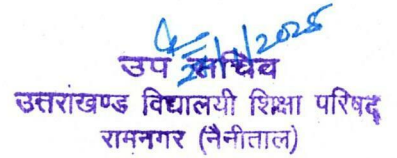 उप सचिव
उत्तराखण्ड विद्यालयी शिक्षा परिषद्
रामनगर (नैनीताल)